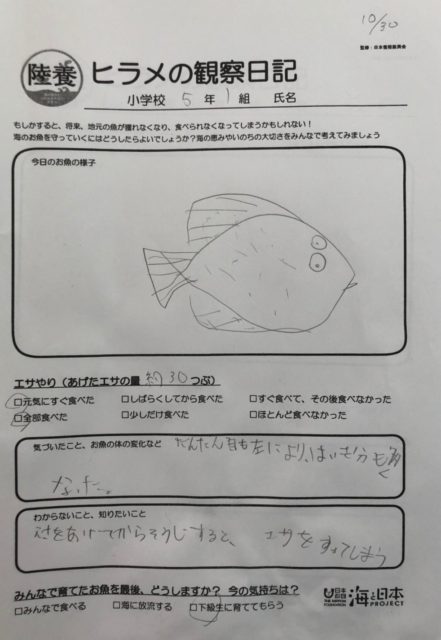 10/30
監修：日本養殖振興会
陸養 ヒラメの観察日記
小学校 5 年 1 組 氏名
もしかすると、将来、地元の魚が獲れなくなり、食べられなくなってしまうかもしれない！
海のお魚を守っていくにはどうしたらよいでしょうか？海の恵みやいのちの大切さをみんなで考えてみましょう
今日のお魚の様子
エサやり（あげたエサの量 約30 つぶ）
□元気にすぐ食べた □しばらくしてから食べた □すぐ食べて、その後食べなかった
□全部食べた □少しだけ食べた □ほとんど食べなかった
気づいたこと、お魚の体の変化など だんだん目も左により、はいせつ分も多く
なった。
わからないこと、知りたいこと
エサをあげてからそうじすると、 エサをすってしまう
みんなで育てたお魚を最後、どうしますか？ 今の気持ちは？
□みんなで食べる □海に放流する □下級生に育ててもらう
日本財団 THE NIPPON FOUNDATION 海と日本 PROJECT